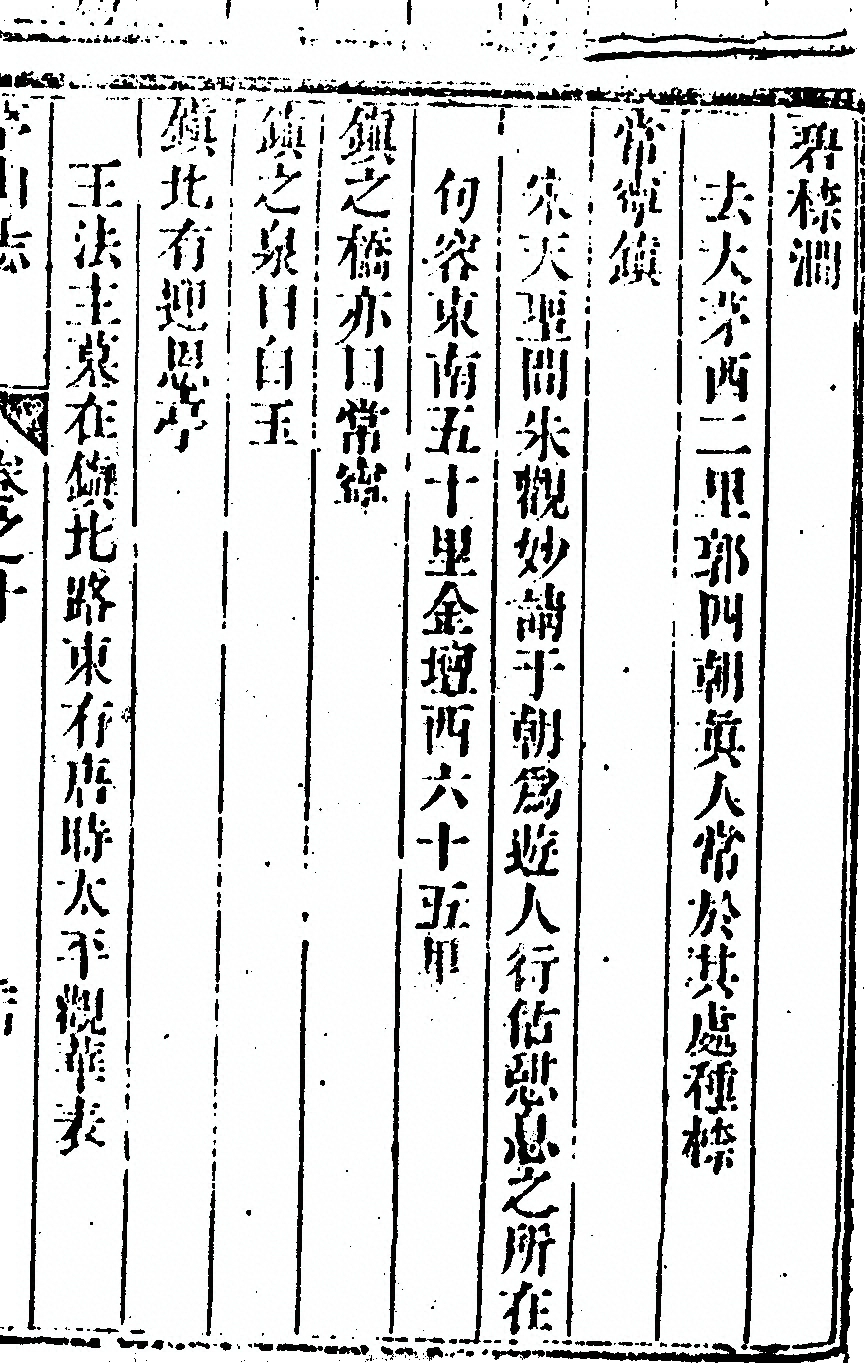 碧㮏澗
去大茅西二里郭四朝真人常於其處種㮏
常寧鎮
宋天聖間朱觀妙請于朝爲遊人行估憇息之所在
句容東南五十里金壇西六十五里
鎮之橋亦曰常寧
鎮之泉曰白玉
鎮北有迎恩亭
王法主墓在鎮北路東有唐時太平觀華表
茅山志
卷之十